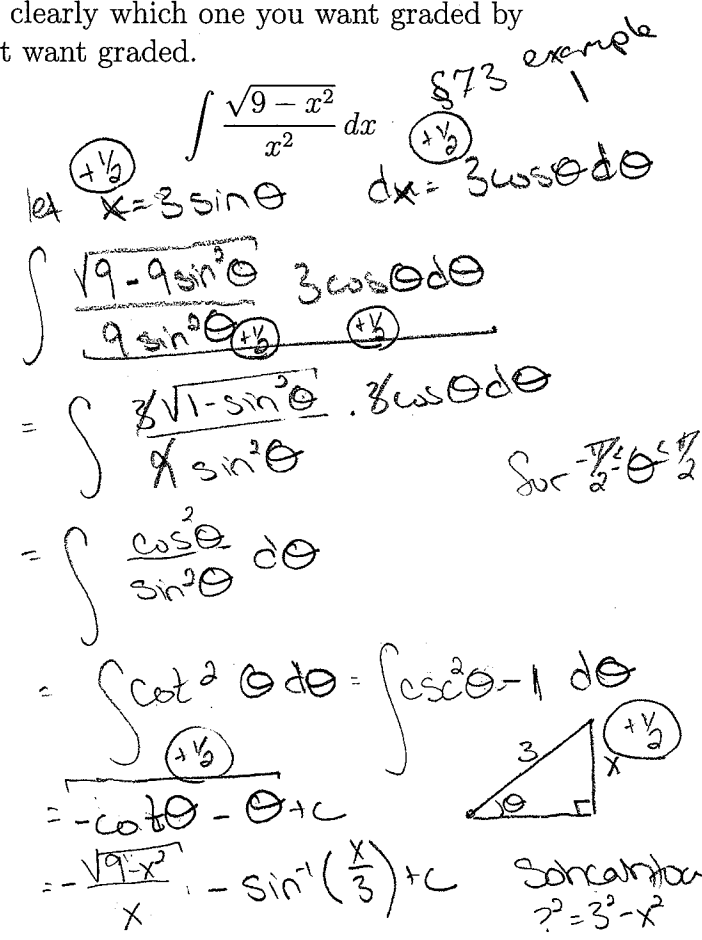 clearly which one you want graded by
t want graded.
§73 example 1
∫ √(9 − x²) / x² dx
+½ +½
let x = 3 sin θ dx = 3 cos θ dθ
∫ √(9 - 9 sin²θ) / (9 sin²θ) 3 cos θ dθ
+½ +½
= ∫ 3√(1 - sin²θ) / (9 sin²θ) · 3 cos θ dθ
for -π/2 ≤ θ ≤ π/2
= ∫ cos²θ / sin²θ dθ
= ∫ cot²θ dθ = ∫ csc²θ - 1 dθ
+½ +½
3 x θ
= -cot θ - θ + c
= -√(9 - x²) / x - sin⁻¹(x/3) + c
?² = 3² - x²